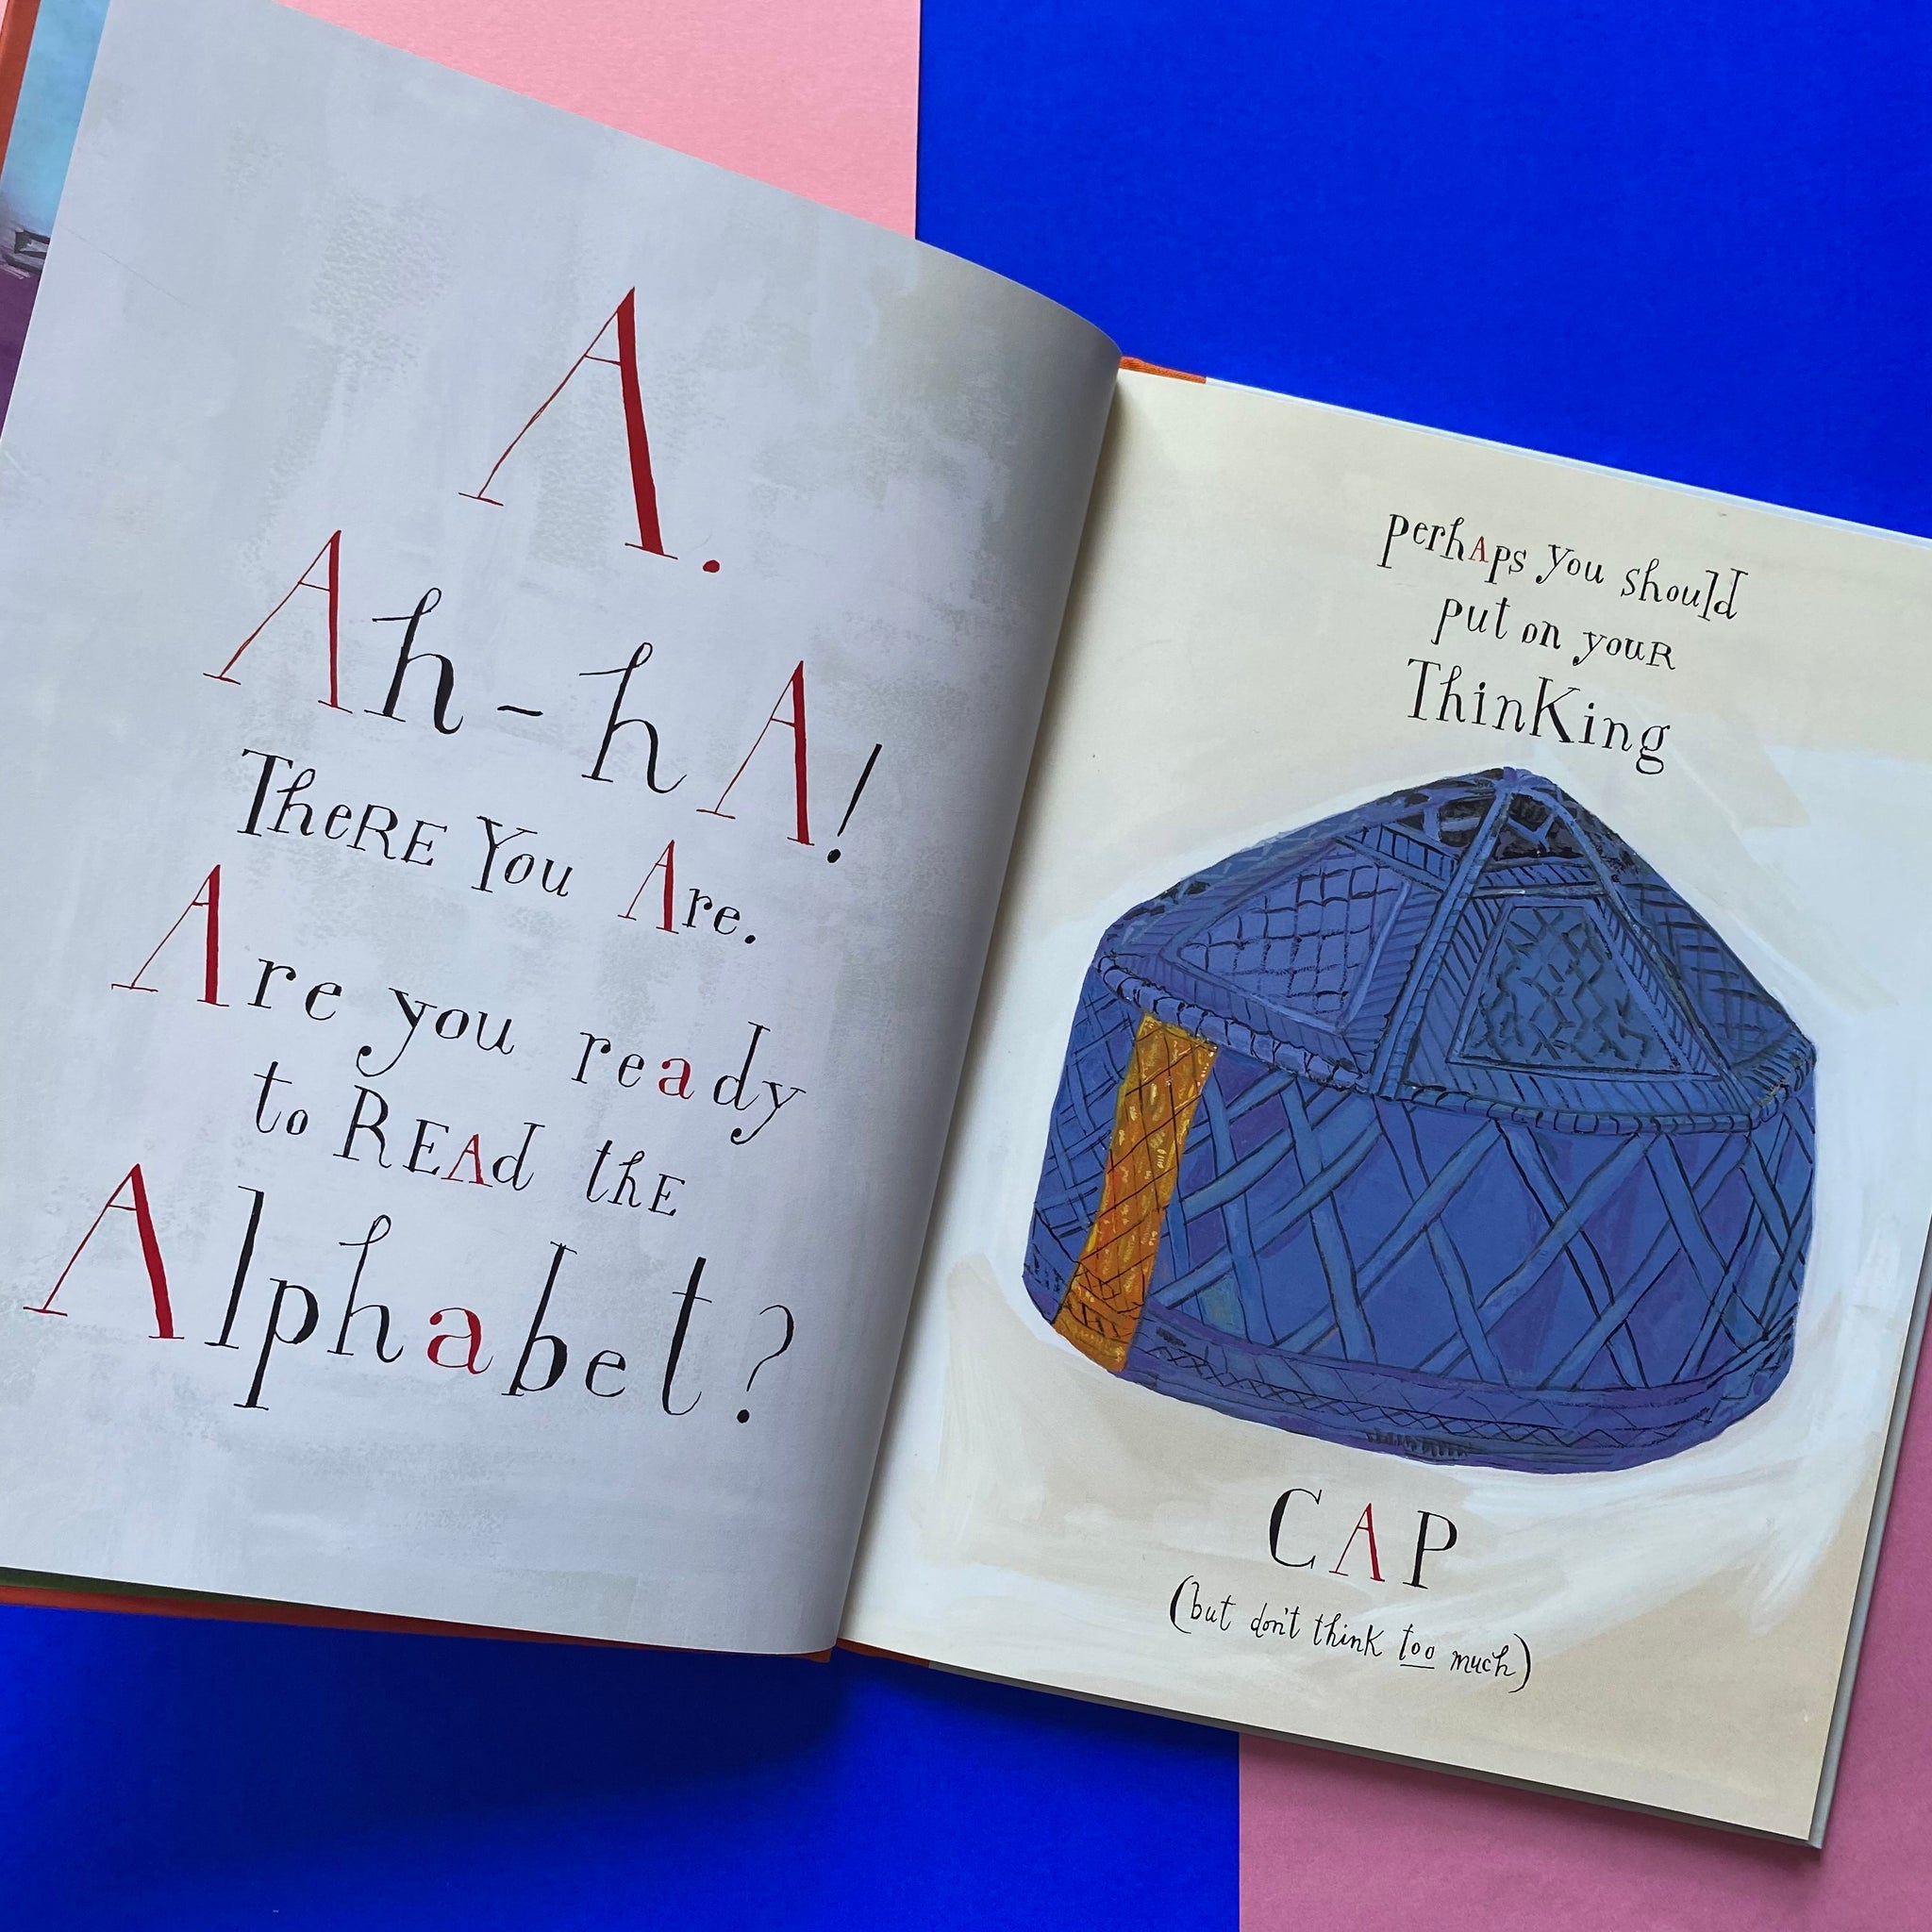 A.
Ah-hA!
TheRE You Are.
Are you ready
to REAd thE
Alphabet?
perhAps you should
put on youR
ThinKing
CAP
(but don't thinK too much)